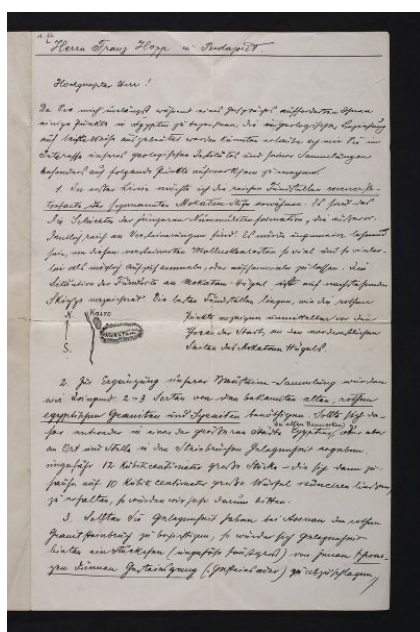 Herrn Franz Hopp in Budapest.
Hochgeehrter Herr!
Da Sie mich unlängst während eines Gespräches aufforderten Ihnen
einige Punkte in Egypten zu bezeichnen, die in geologischer Beziehung
auf leichte Weise ausgebeutet werden könnten erlaube ich mir Sie im
Interesse unseres geologischen Institutes und seiner Sammlungen
besonders auf folgende Punkte aufmerksam zu machen.
1. In erster Linie möchte ich die reichen Fundstellen
des sogenannten Mokattam erwähnen. Es sind das
die Schichten der jüngeren Nummulitenformation, die ausser-
dentlich reich an Versteinerungen sind. Es würde ungemein lohnend
sein, von diesen versteinerten Molluskenarten so viel und so vieler-
lei als möglich aufzusammeln, oder aufsammeln zu lassen. Die
Situation der Fundorte am Mokatam-Hügel ist auf nachstehender
Skizze verzeichnet. Die besten Fundstellen liegen, wie die rothen
N. KAIRO Punkte anzeigen unmittelbar vor den
Thoren der Stadt, an den nordwestlichen
S. Seiten des Mokattam Hügels.
2. Zur Ergänzung unserer Baustein-Sammlung würden
wir dringend 2–3 Sorten von den bekannten alten, rothen
egyptischen Graniten und Syeniten benöthigen. Sollte sich da-
(zu alten Bauwerken)
für entweder in einer der grösseren Städte Egyptens, oder aber
an Ort und Stelle in den Steinbrüchen Gelegenheit ergeben
ungefähr 12 Kubikcentimeter grosse Stücke – die sich dann zu-
hause auf 10 Kubikcentimeter grosse Würfel reduciren liessen,
zu erhalten, so würden wir sehr darum bitten.
3. Sollten Sie Gelegenheit haben bei Assuan den rothen
Granitsteinbruch zu besichtigen, so würde sich Gelegenheit
bieten ein Stückchen (ungefähr faustgross) von jenem
gen dünnen Gesteinsgang (: Gesteinsader) abzuschlagen,